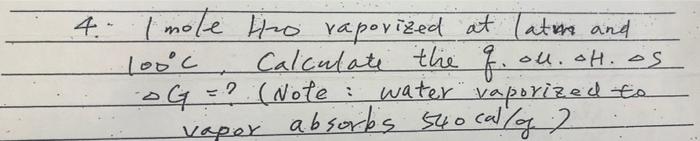 4. 1 mole H2O vaporized at 1atm and
100°C. Calculate the q. ΔU. ΔH. ΔS
ΔG = ? (Note : water vaporized to
vapor absorbs 540 cal/g )